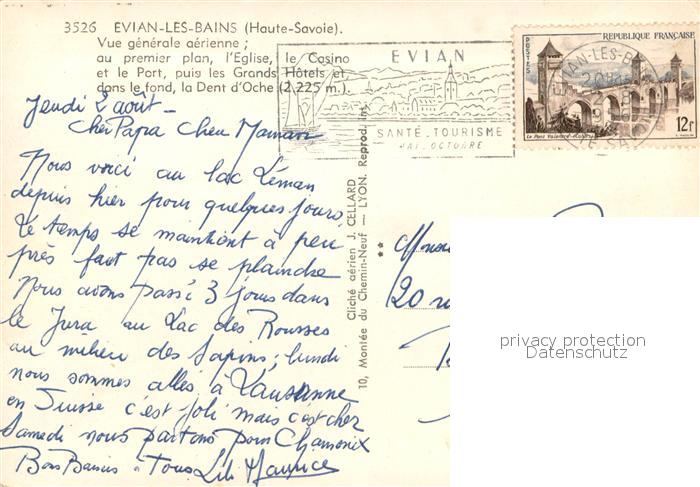 3526 EVIAN-LES-BAINS (Haute-Savoie).
Vue générale aérienne ;
au premier plan, l'Eglise, le Casino
et le Port, puis les Grands Hôtels et
dans le fond, la Dent d'Oche (2.225 m.).
EVIAN
SANTÉ_TOURISME
MAI_OCTOBRE
POSTES
REPUBLIQUE FRANÇAISE
Le Pont Valentré-Cahors
12f
EVIAN-LES-BAINS
Jeudi 2 août_
Cher Papa Cheu Maman
Nous voici au lac Léman
depuis hier pour quelques jours
Le temps se maintient à peu
près faut pas se plaindre
Nous avons passé 3 jours dans
le Jura au Lac des Rousses
au milieu des Sapins; lundi
nous sommes allés à Lausanne
en Suisse c'est joli mais c'est cher
Samedi nous partons pour Chamonix
Bons Baisers à Tous Lili Maurice
Cliché aérien J. CELLARD
10, Montée du Chemin-Neuf — LYON. Reprod. int.
**
20
privacy protection
Datenschutz